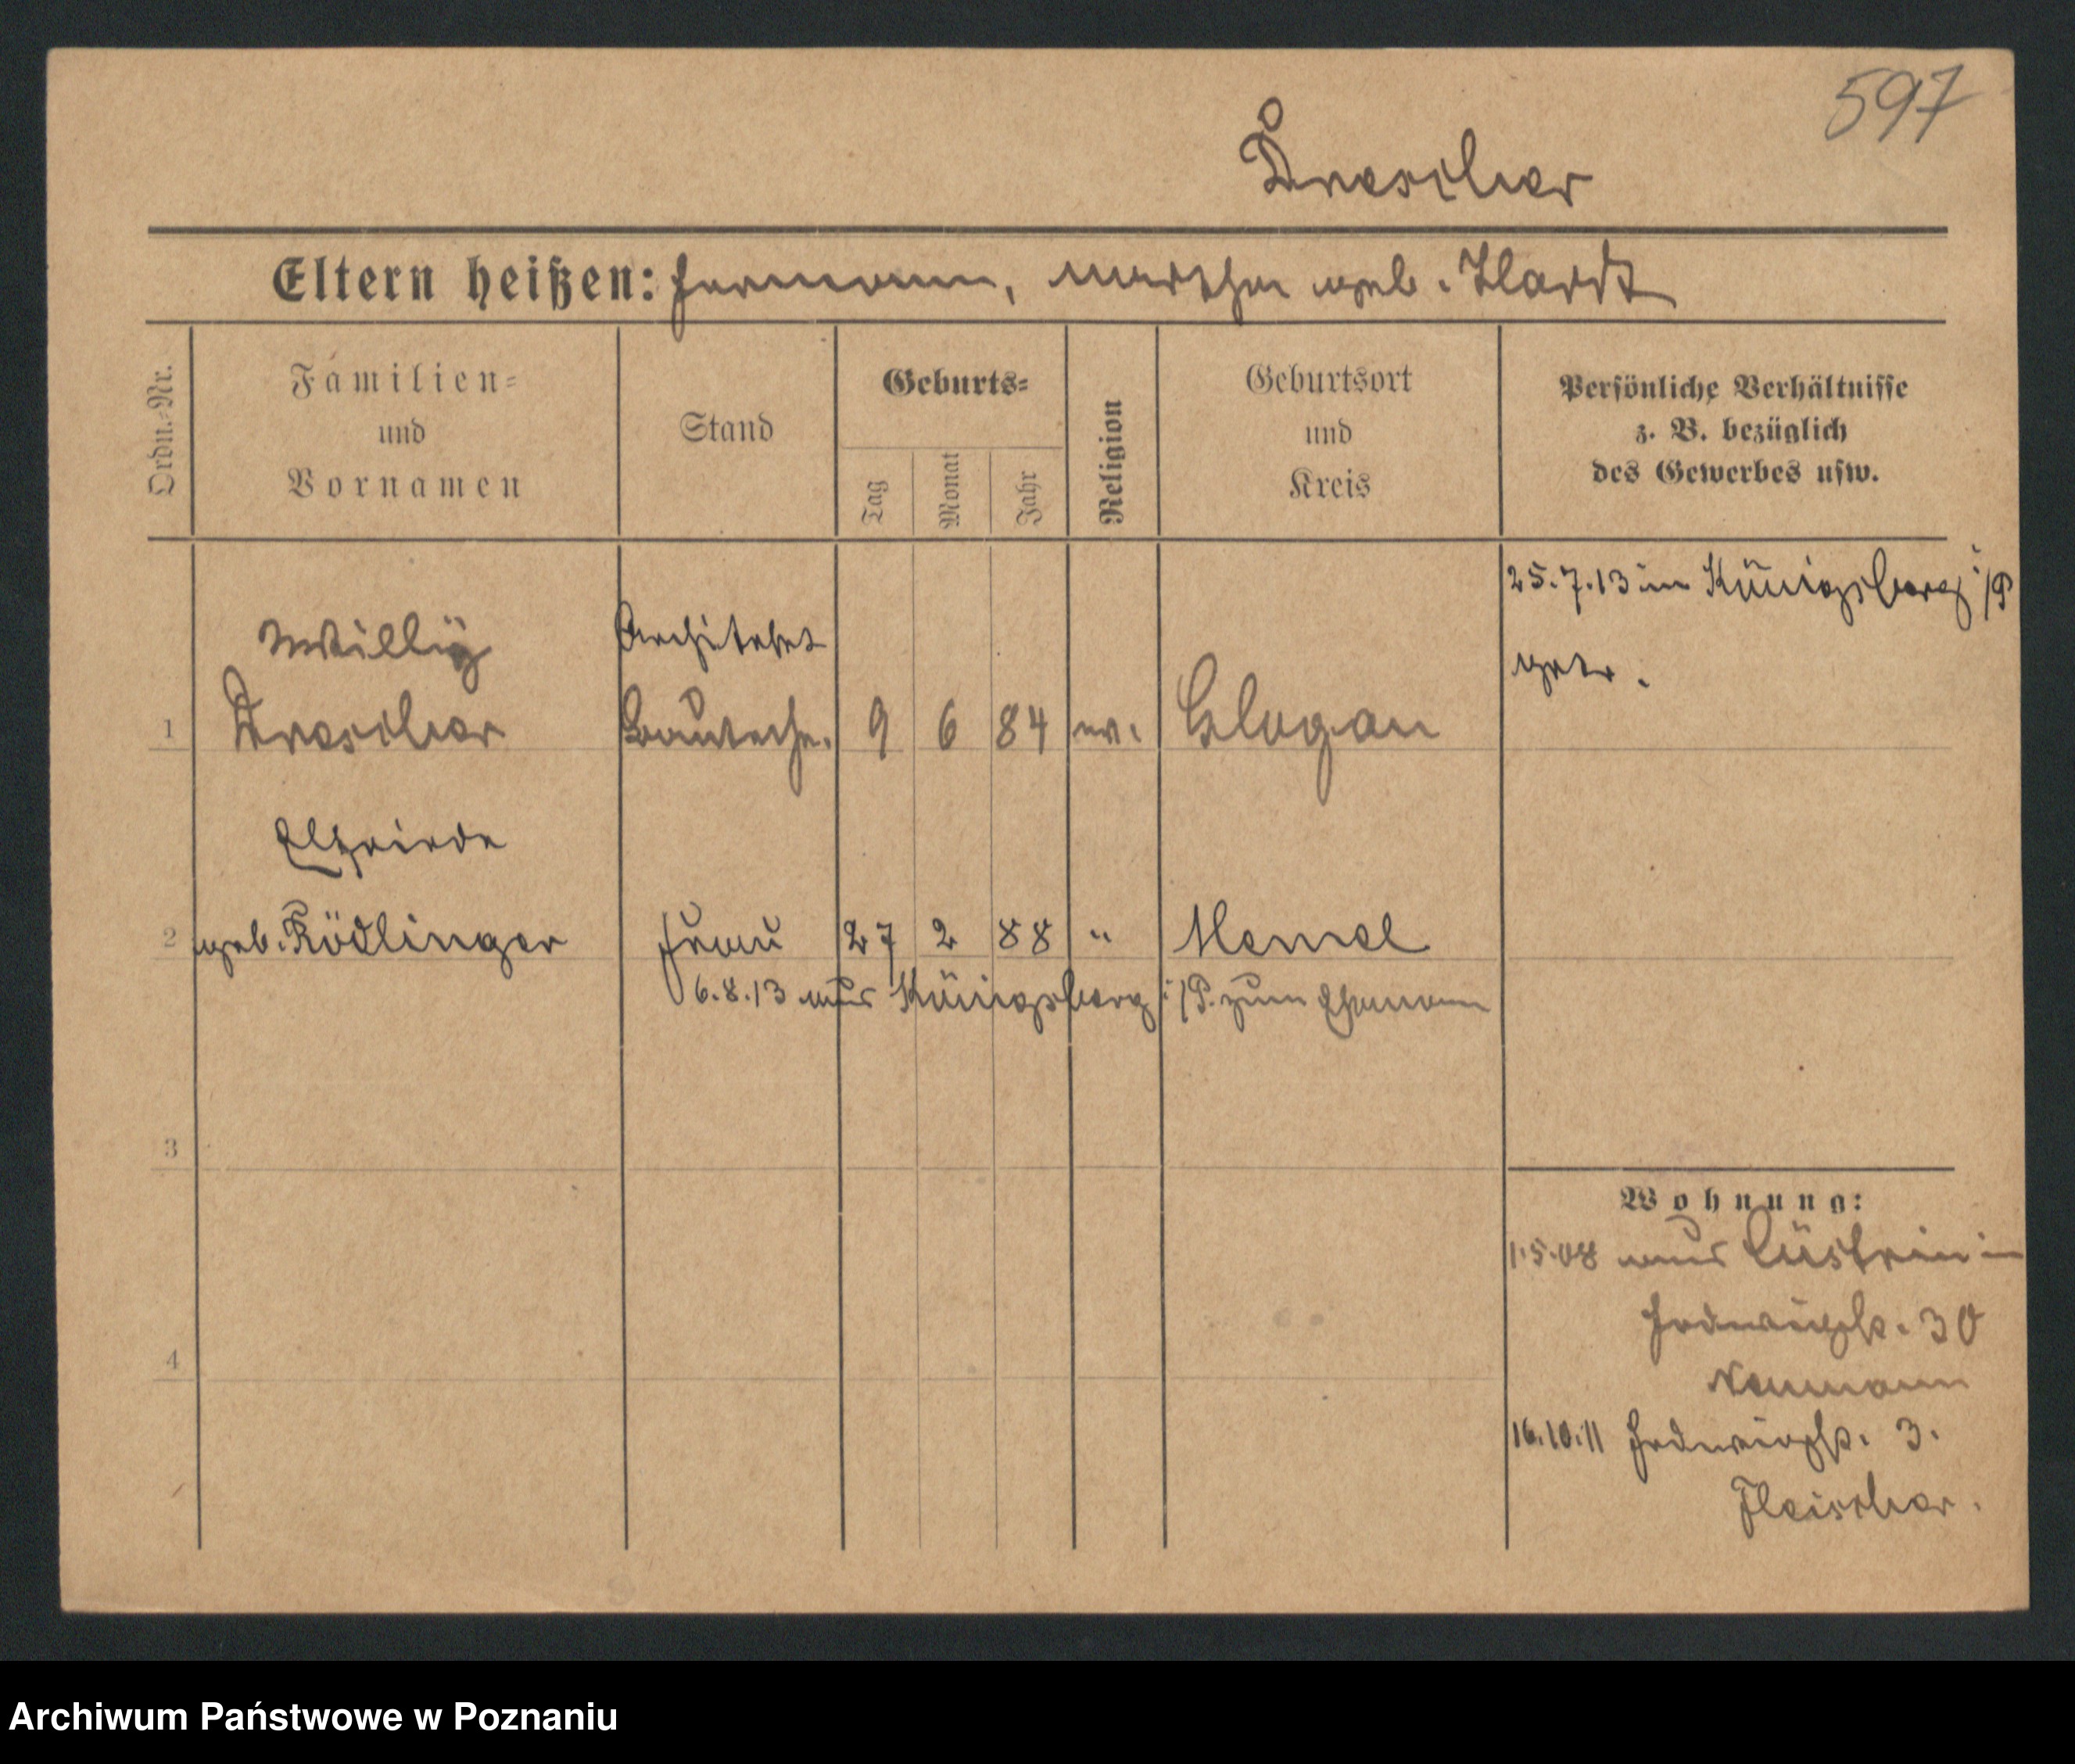 597
Drescher
Eltern heißen: Hermann, Martha geb. Hardt
Ordn.=Nr.
Familien=
und
Vornamen
Stand
Geburts=
Tag
Monat
Jahr
Religion
Geburtsort
und
Kreis
Persönliche Verhältnisse
z. B. bezüglich
des Gewerbes usw.
25.7.13 in Königsberg i/P
getr.
Willy
Architekt
1 Drescher Bautechn. 9 6 84 ev. Glogau
Elfriede
2 geb. Rödlinger Frau 27 2 88 " Memel
6.8.13 aus Königsberg i/P. zum Ehemann
3
Wohnung:
1.5.08 aus Cüstrin in
Hedwigstr. 30
4
Neumann
16.10.11 Hedwigstr. 3.
Fleischer.
Archiwum Państwowe w Poznaniu